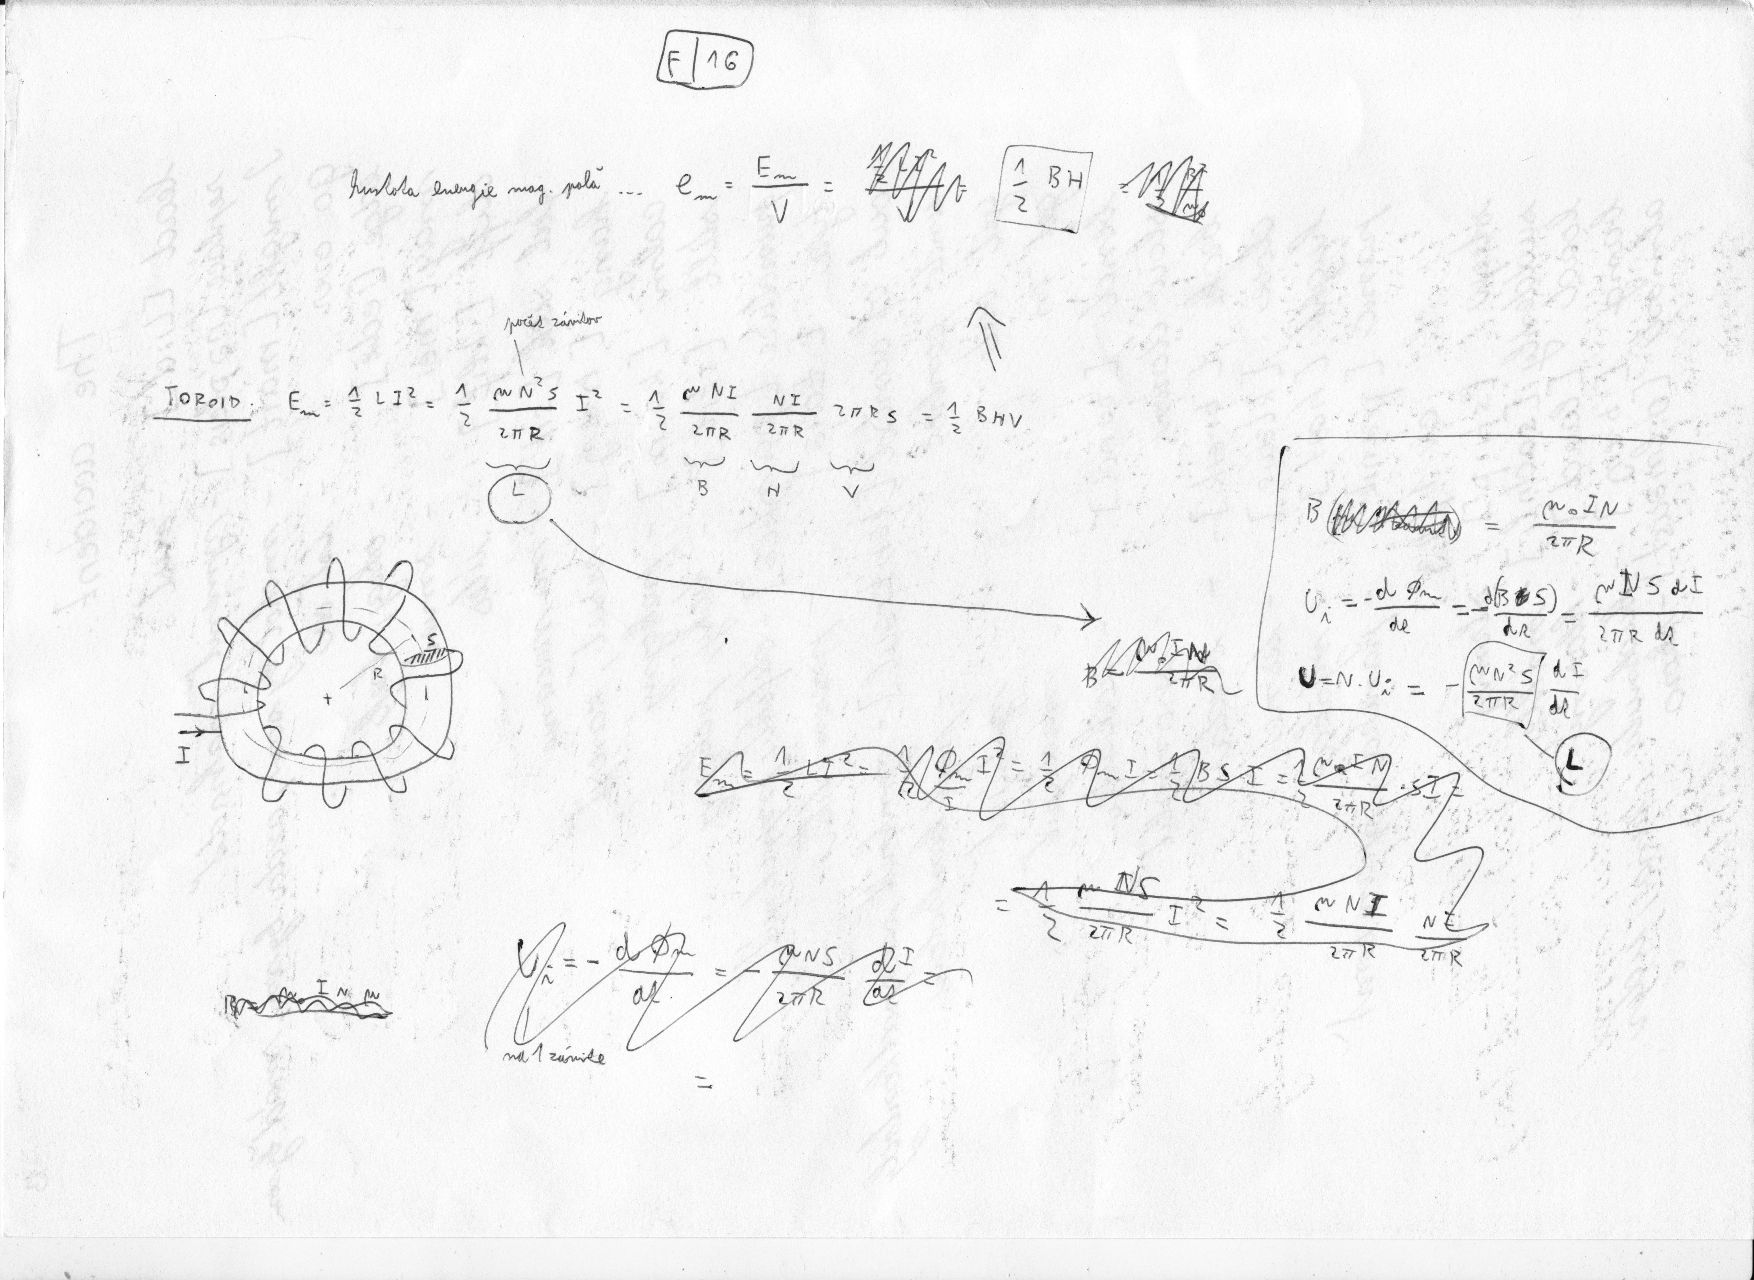 F | 16
hustota energie mag. poľa ... e_m = E_m / V = 1/2 BH
počet závitov
TOROID. E_m = 1/2 L I² = 1/2 μN²S / 2πR I² = 1/2 μNI / 2πR NI / 2πR 2πRS = 1/2 BHV
L B H V
B = μ₀IN / 2πR
U_i = - dΦ_m / dt = - d(BS) / dt = μNS dI / 2πR dt
U = N.U_i = - μN²S / 2πR dI / dt
L
S
R
I
B = μ₀IN / 2πR
E_m = 1/2 LI² = 1/2 Φ_m / I I² = 1/2 Φ_m I = 1/2 BS I = 1/2 μ₀IN / 2πR · SI =
= 1/2 μNS / 2πR I² = 1/2 μNI / 2πR NI / 2πR
U_i = - dΦ_m / dt = - μNS / 2πR dI / dt =
na 1 závite
=